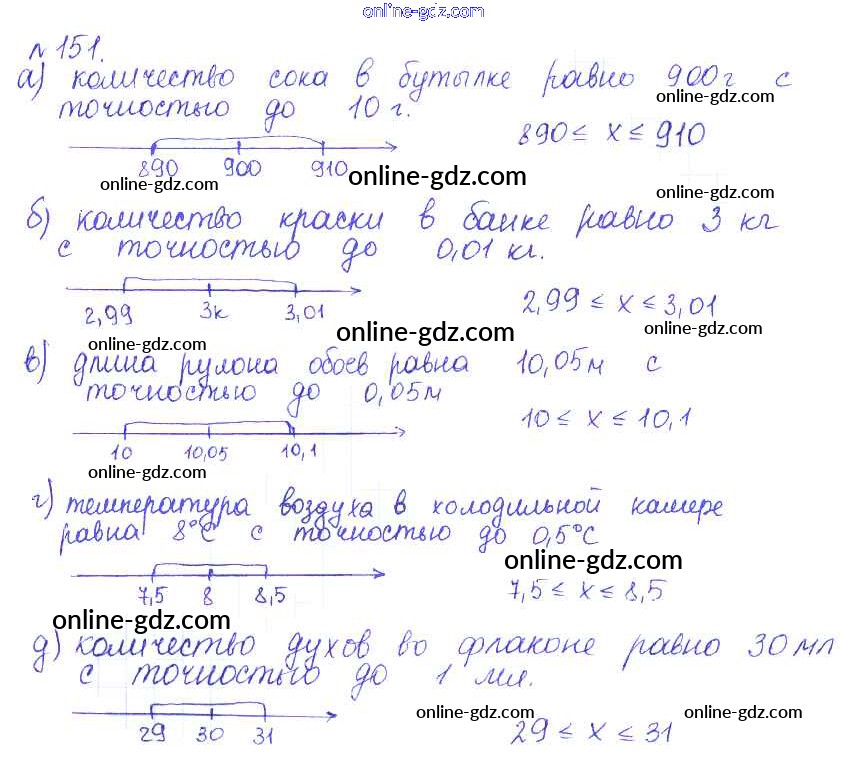 online-gdz.com
№ 151.
а) количество сока в бутылке равно 900 г с
online-gdz.com
точностью до 10 г.
890 ≤ x ≤ 910
890 900 910
online-gdz.com
online-gdz.com
online-gdz.com
б) количество краски в банке равно 3 кг
с точностью до 0,01 кг.
2,99 3к 3,01
2,99 ≤ x ≤ 3,01
online-gdz.com
online-gdz.com
online-gdz.com
в) длина рулона обоев равна 10,05м с
точностью до 0,05м
10 ≤ x ≤ 10,1
10 10,05 10,1
online-gdz.com
г) температура воздуха в холодильной камере
равна 8°С с точностью до 0,5°С
online-gdz.com
7,5 8 8,5
7,5 ≤ x ≤ 8,5
online-gdz.com
д) количество духов во флаконе равно 30 мл
с точностью до 1 мл.
online-gdz.com
online-gdz.com
29 30 31
29 ≤ x ≤ 31